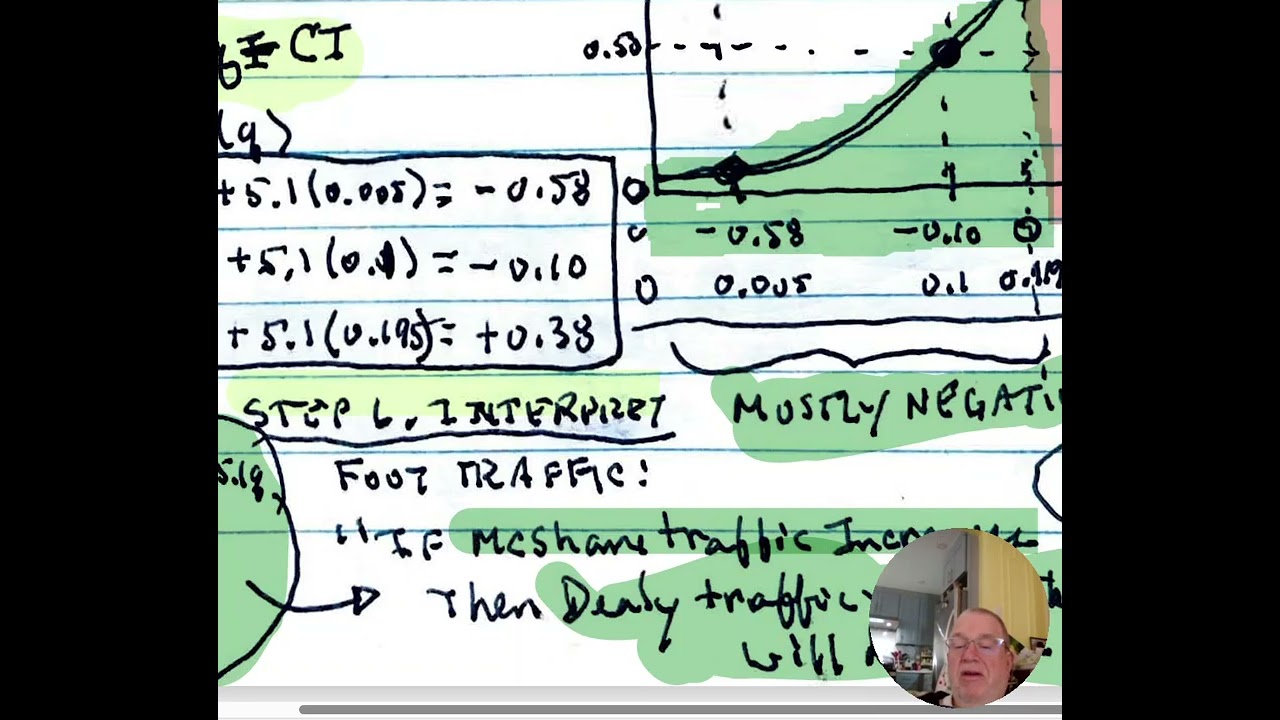 I CI
0.50
(q)
+5.1(0.005) = -0.58
0
+5.1(0.1) = -0.10
0 -0.58 -0.10 0
0 0.005 0.1 0.119
+5.1(0.195) = +0.38
STEP 6. INTERPRET
MOSTLY NEGATI
5.1q
FOOT TRAFFIC:
"IF McShane traffic
Then Dealy traffic
will